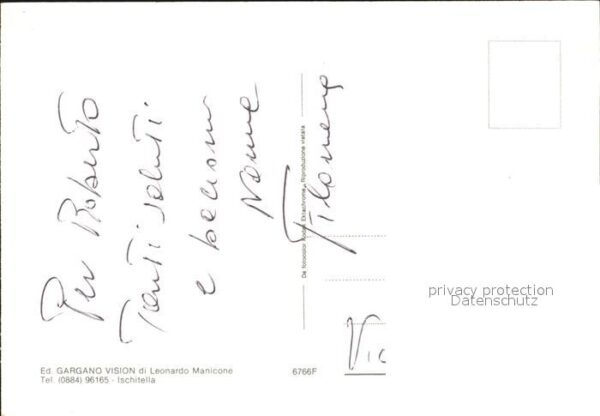 Per Roberto
Tanti saluti
e bacioni
Nonna
Filomena
De fotocolor Kodak Ektachrome. Riproduzione vietata
privacy protection
Datenschutz
Vic
Ed. GARGANO VISION di Leonardo Manicone
Tel. (0884) 96165 - Ischitella
6766F